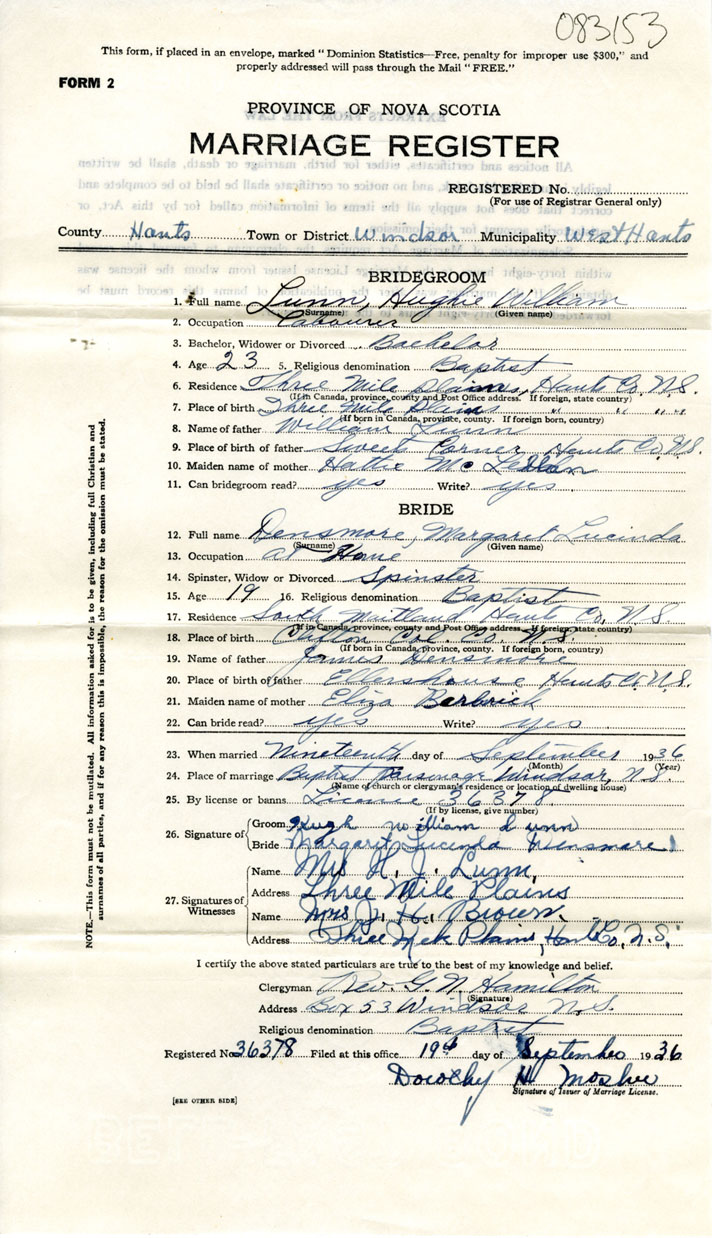 083153
This form, if placed in an envelope, marked "Dominion Statistics—Free, penalty for improper use $300," and
properly addressed will pass through the Mail "FREE."
FORM 2
PROVINCE OF NOVA SCOTIA
MARRIAGE REGISTER
REGISTERED No.
(For use of Registrar General only)
County Hants Town or District Windsor Municipality West Hants
BRIDEGROOM
1. Full name Lunn, Hughie William
(Surname) (Given name)
2. Occupation Labourer
3. Bachelor, Widower or Divorced Bachelor
4. Age 23 5. Religious denomination Baptist
6. Residence Three Mile Plains, Hants Co. N.S.
(If in Canada, province, county and Post Office address. If foreign, state country)
7. Place of birth Three Mile Plains " " " "
(If born in Canada, province, county. If foreign born, country)
8. Name of father William Lunn
9. Place of birth of father Sweet Corner, Hants Co. N.S.
10. Maiden name of mother Hattie McLellan
11. Can bridegroom read? yes Write? yes
BRIDE
12. Full name Densmore, Margaret Lucinda
(Surname) (Given name)
13. Occupation at Home
14. Spinster, Widow or Divorced Spinster
15. Age 19 16. Religious denomination Baptist
17. Residence South Maitland Hants Co. N.S.
(If in Canada, province, county and Post Office address. If foreign, state country)
18. Place of birth Clifton Col. Co. N.S.
(If born in Canada, province, county. If foreign born, country)
19. Name of father James Densmore
20. Place of birth of father Ellershouse Hants Co. N.S.
21. Maiden name of mother Eliza Barbrick
22. Can bride read? yes Write? yes
23. When married Nineteenth day of September 1936
(Month) (Year)
24. Place of marriage Baptist Parsonage Windsor, N.S.
(Name of church or clergyman's residence or location of dwelling house)
25. By license or banns License 36378
(If by license, give number)
26. Signature of
Groom Hugh william Lunn
Bride Margaret Lucinda Densmore
27. Signatures of Witnesses
Name Mrs H. J. Lunn,
Address Three Mile Plains
Name Mrs J. H. Brown.
Address Three Mile Plains, Hants Co, N.S.
I certify the above stated particulars are true to the best of my knowledge and belief.
Clergyman Rev. G. N. Hamilton
(Signature)
Address Box 53 Windsor N.S.
Religious denomination Baptist
Registered No. 36378 Filed at this office 19th day of September 1936
Dorothy H Mosher
Signature of Issuer of Marriage License.
[SEE OTHER SIDE]
NOTE.—This form must not be mutilated. All information asked for is to be given, including full Christian and
surnames of all parties, and if for any reason this is impossible, the reason for the omission must be stated.